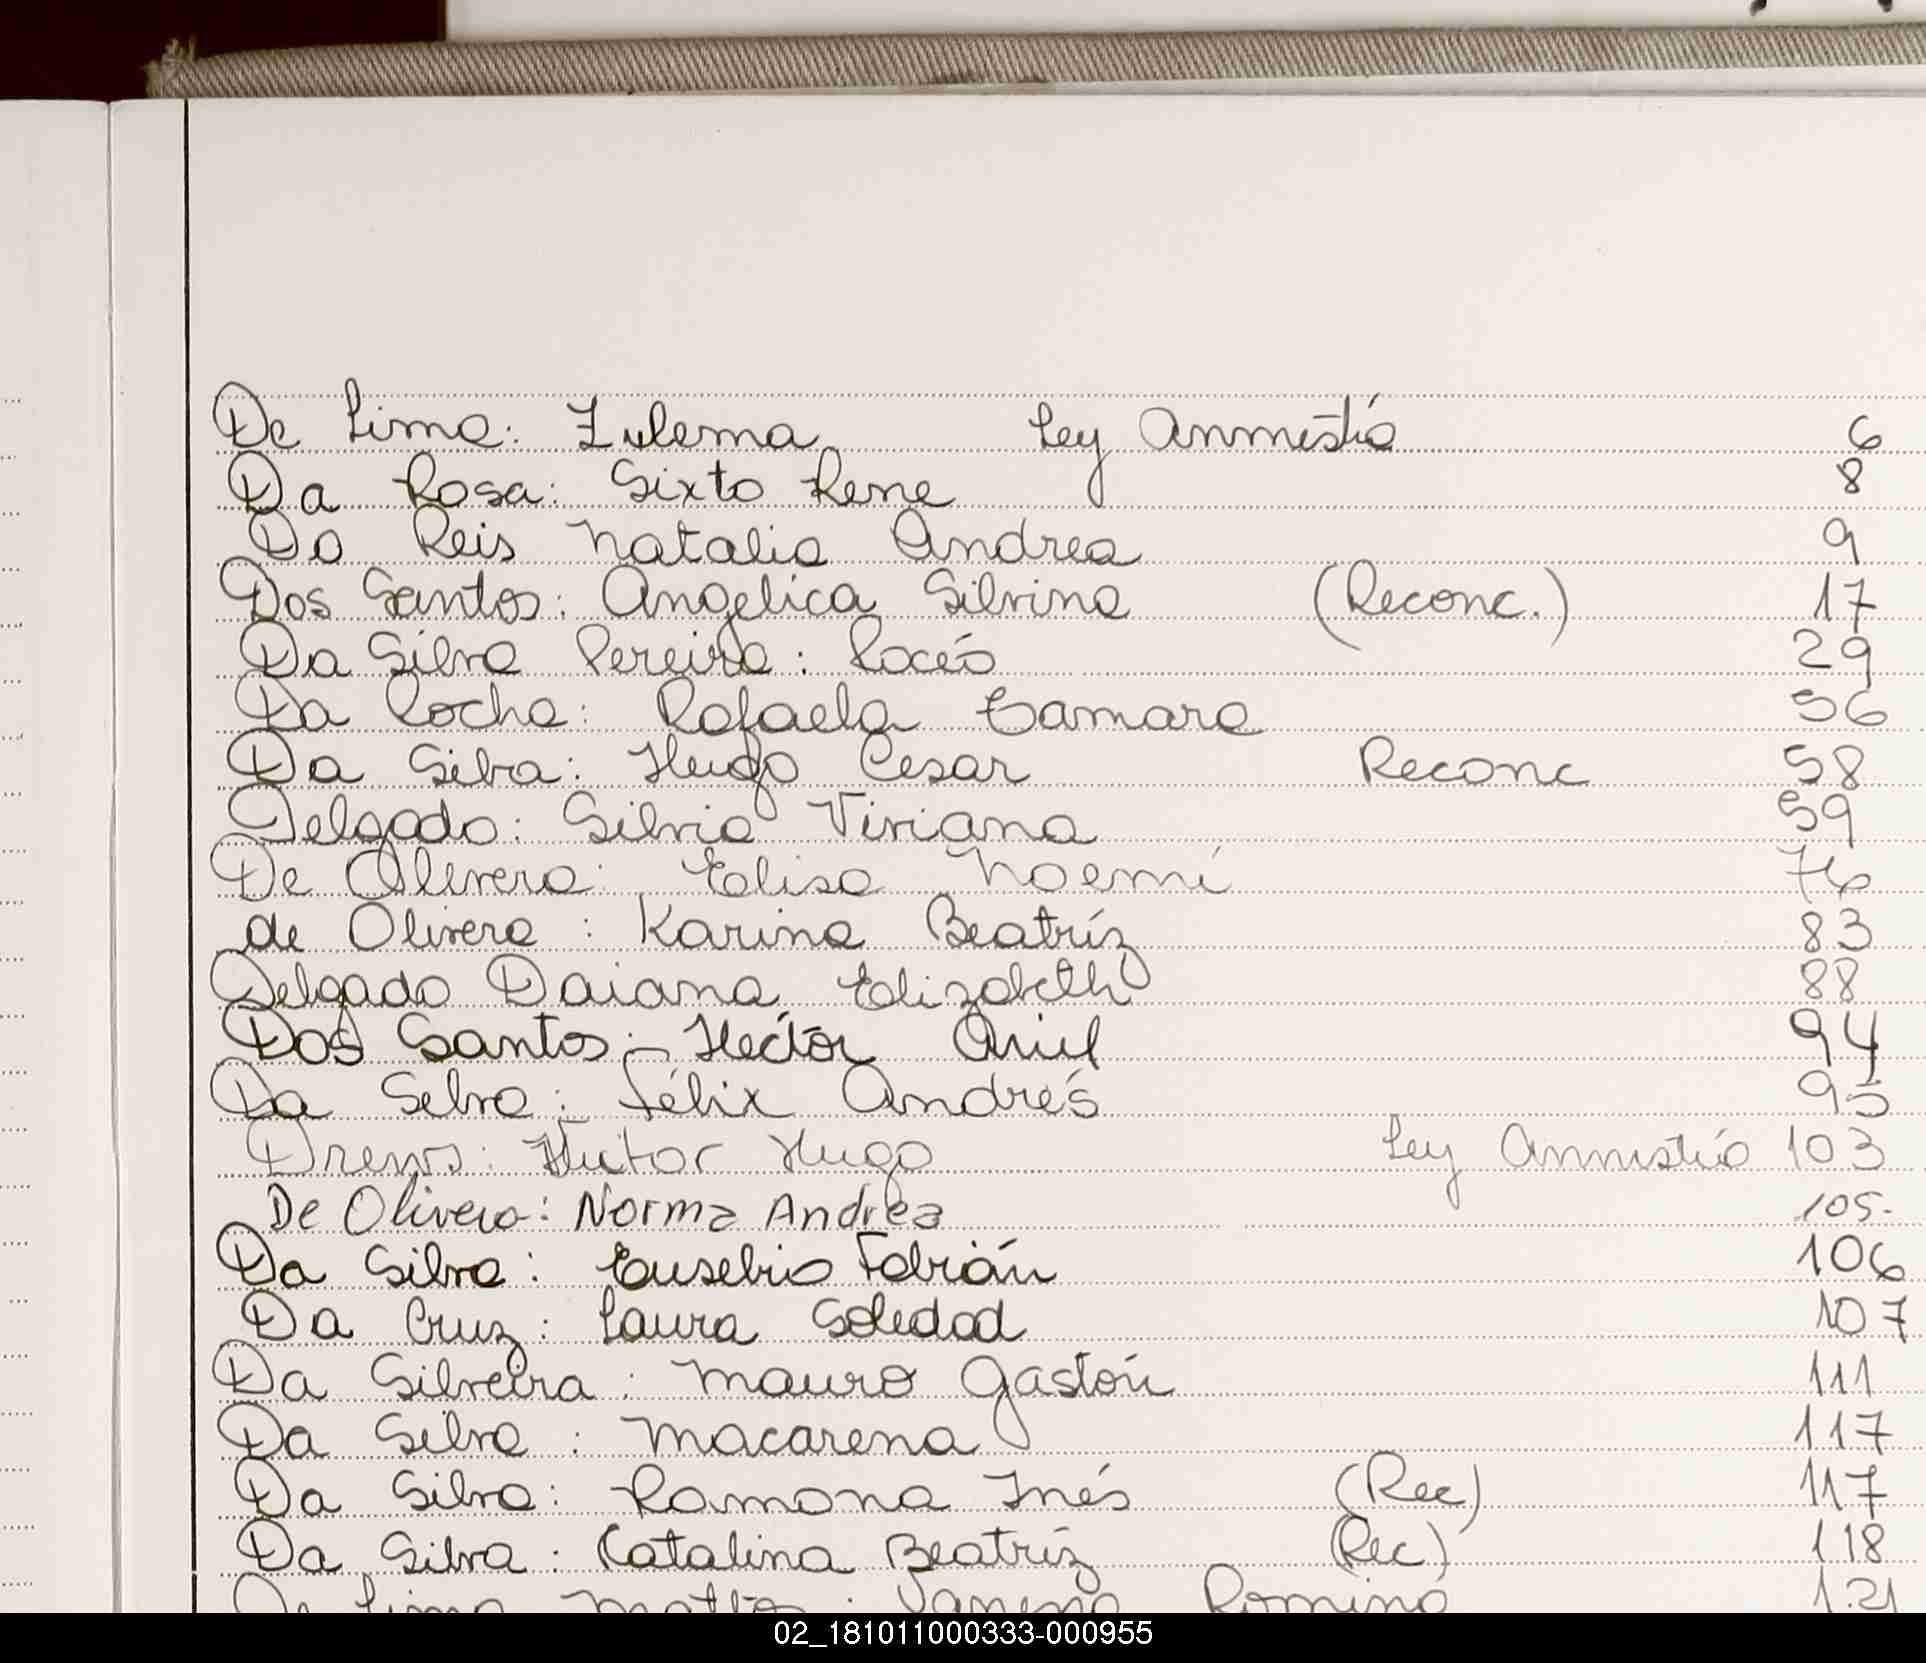 De Lima: Zulema Ley Anmestía 6
Da Rosa: Sixto Rene 8
Do Reis Natalia Andrea 9
Dos Santos: Angelica Silvina (Reconc.) 17
Da Silva Pereira: Rocío 29
Da Rocha: Rafaela Tamara 56
Da Silva: Hugo Cesar Reconc 58
Delgado: Silvia Viviana 59
De Olivera: Elisa Noemí 76
de Olivera: Karina Beatríz 83
Delgado Daiana Elizabeth 88
Dos Santos:- Hector Ariel 94
Da Silva: Félix Andrés 95
Drews: Hector Hugo Ley Anmistía 103
De Olivera: Norma Andrea 105.
Da Silva: Eusebio Fabián 106
Da Cruz: Laura Soledad 107
Da Silveira: Mauro Gastón 111
Da Silva: Macarena 117
Da Silva: Ramona Inés (Rec) 117
Da Silva: Catalina Beatríz (Rec) 118
De Lima Mattos: Vanena Romina 121
02_181011000333-000955